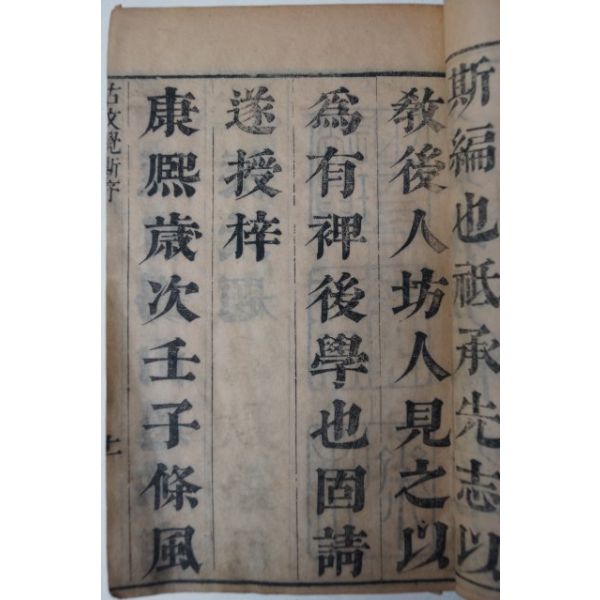 斯編也祗承先志以
敎後人坊人見之以
為有裨後學也固請
遂授梓
康熙歲次壬子條風
古文覺斯序